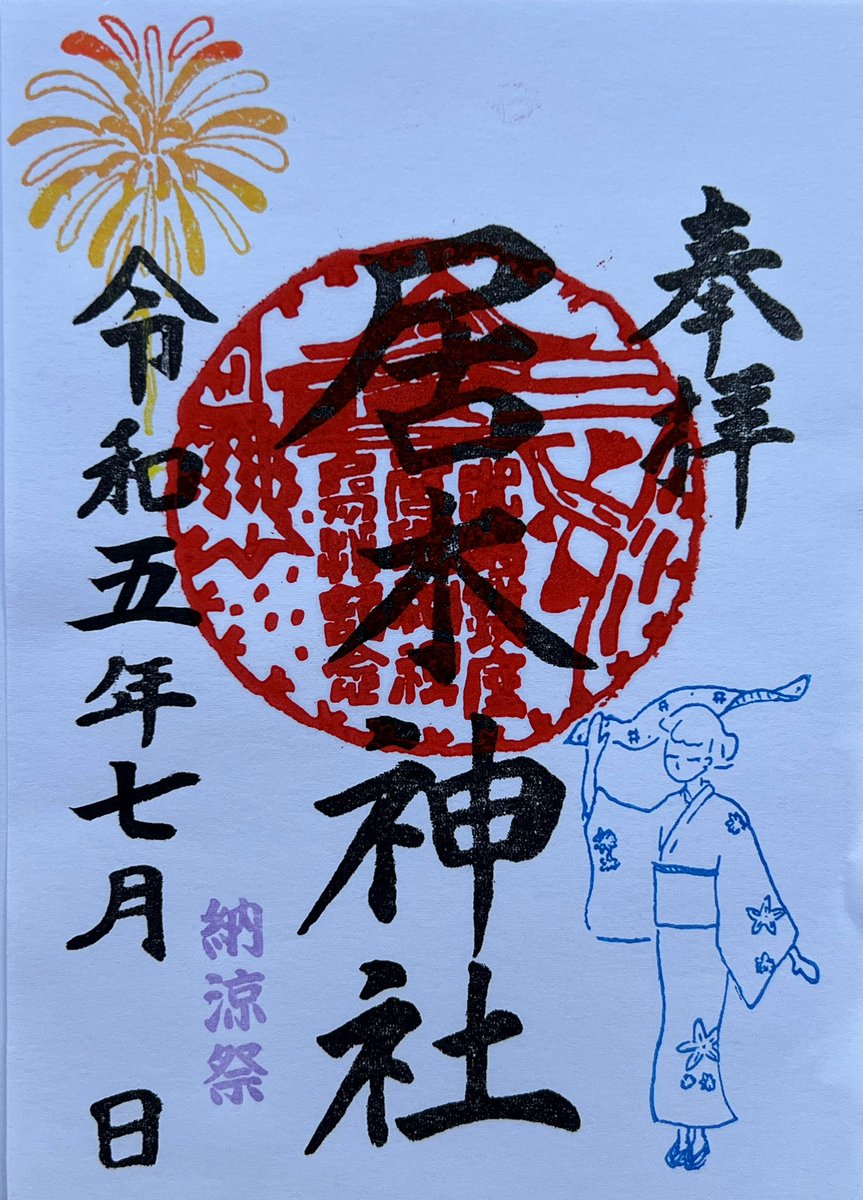 奉拝
居木神社
納涼祭
令和五年七月 日